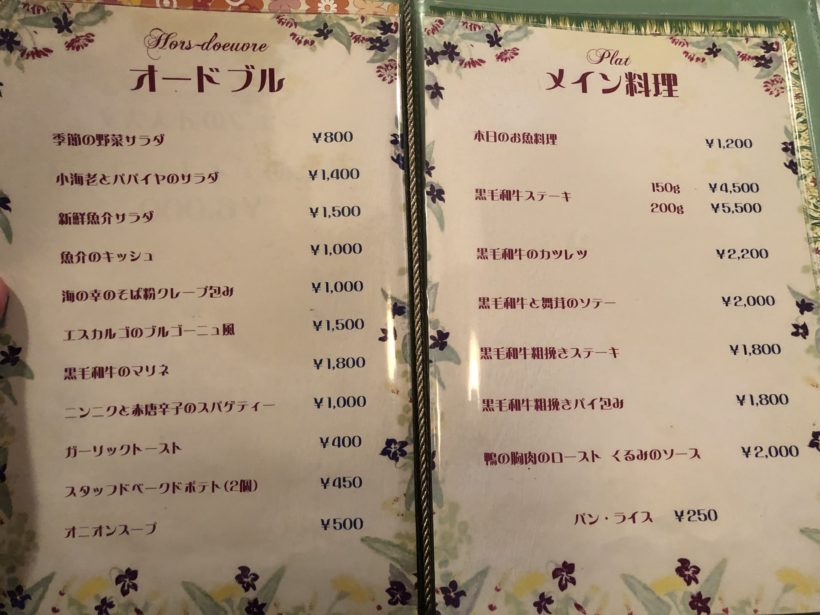 Hors-doeuvre
オードブル
季節の野菜サラダ ¥800
小海老とパパイヤのサラダ ¥1,400
新鮮魚介サラダ ¥1,500
魚介のキッシュ ¥1,000
海の幸のそば粉クレープ包み ¥1,000
エスカルゴのブルゴーニュ風 ¥1,500
黒毛和牛のマリネ ¥1,800
ニンニクと赤唐辛子のスパゲティー ¥1,000
ガーリックトースト ¥400
スタッフドベークドポテト(2個) ¥450
オニオンスープ ¥500
Plat
メイン料理
本日のお魚料理 ¥1,200
黒毛和牛ステーキ 150g ¥4,500
200g ¥5,500
黒毛和牛のカツレツ ¥2,200
黒毛和牛と舞茸のソテー ¥2,000
黒毛和牛粗挽きステーキ ¥1,800
黒毛和牛粗挽きパイ包み ¥1,800
鴨の胸肉のロースト くるみのソース ¥2,000
パン・ライス ¥250